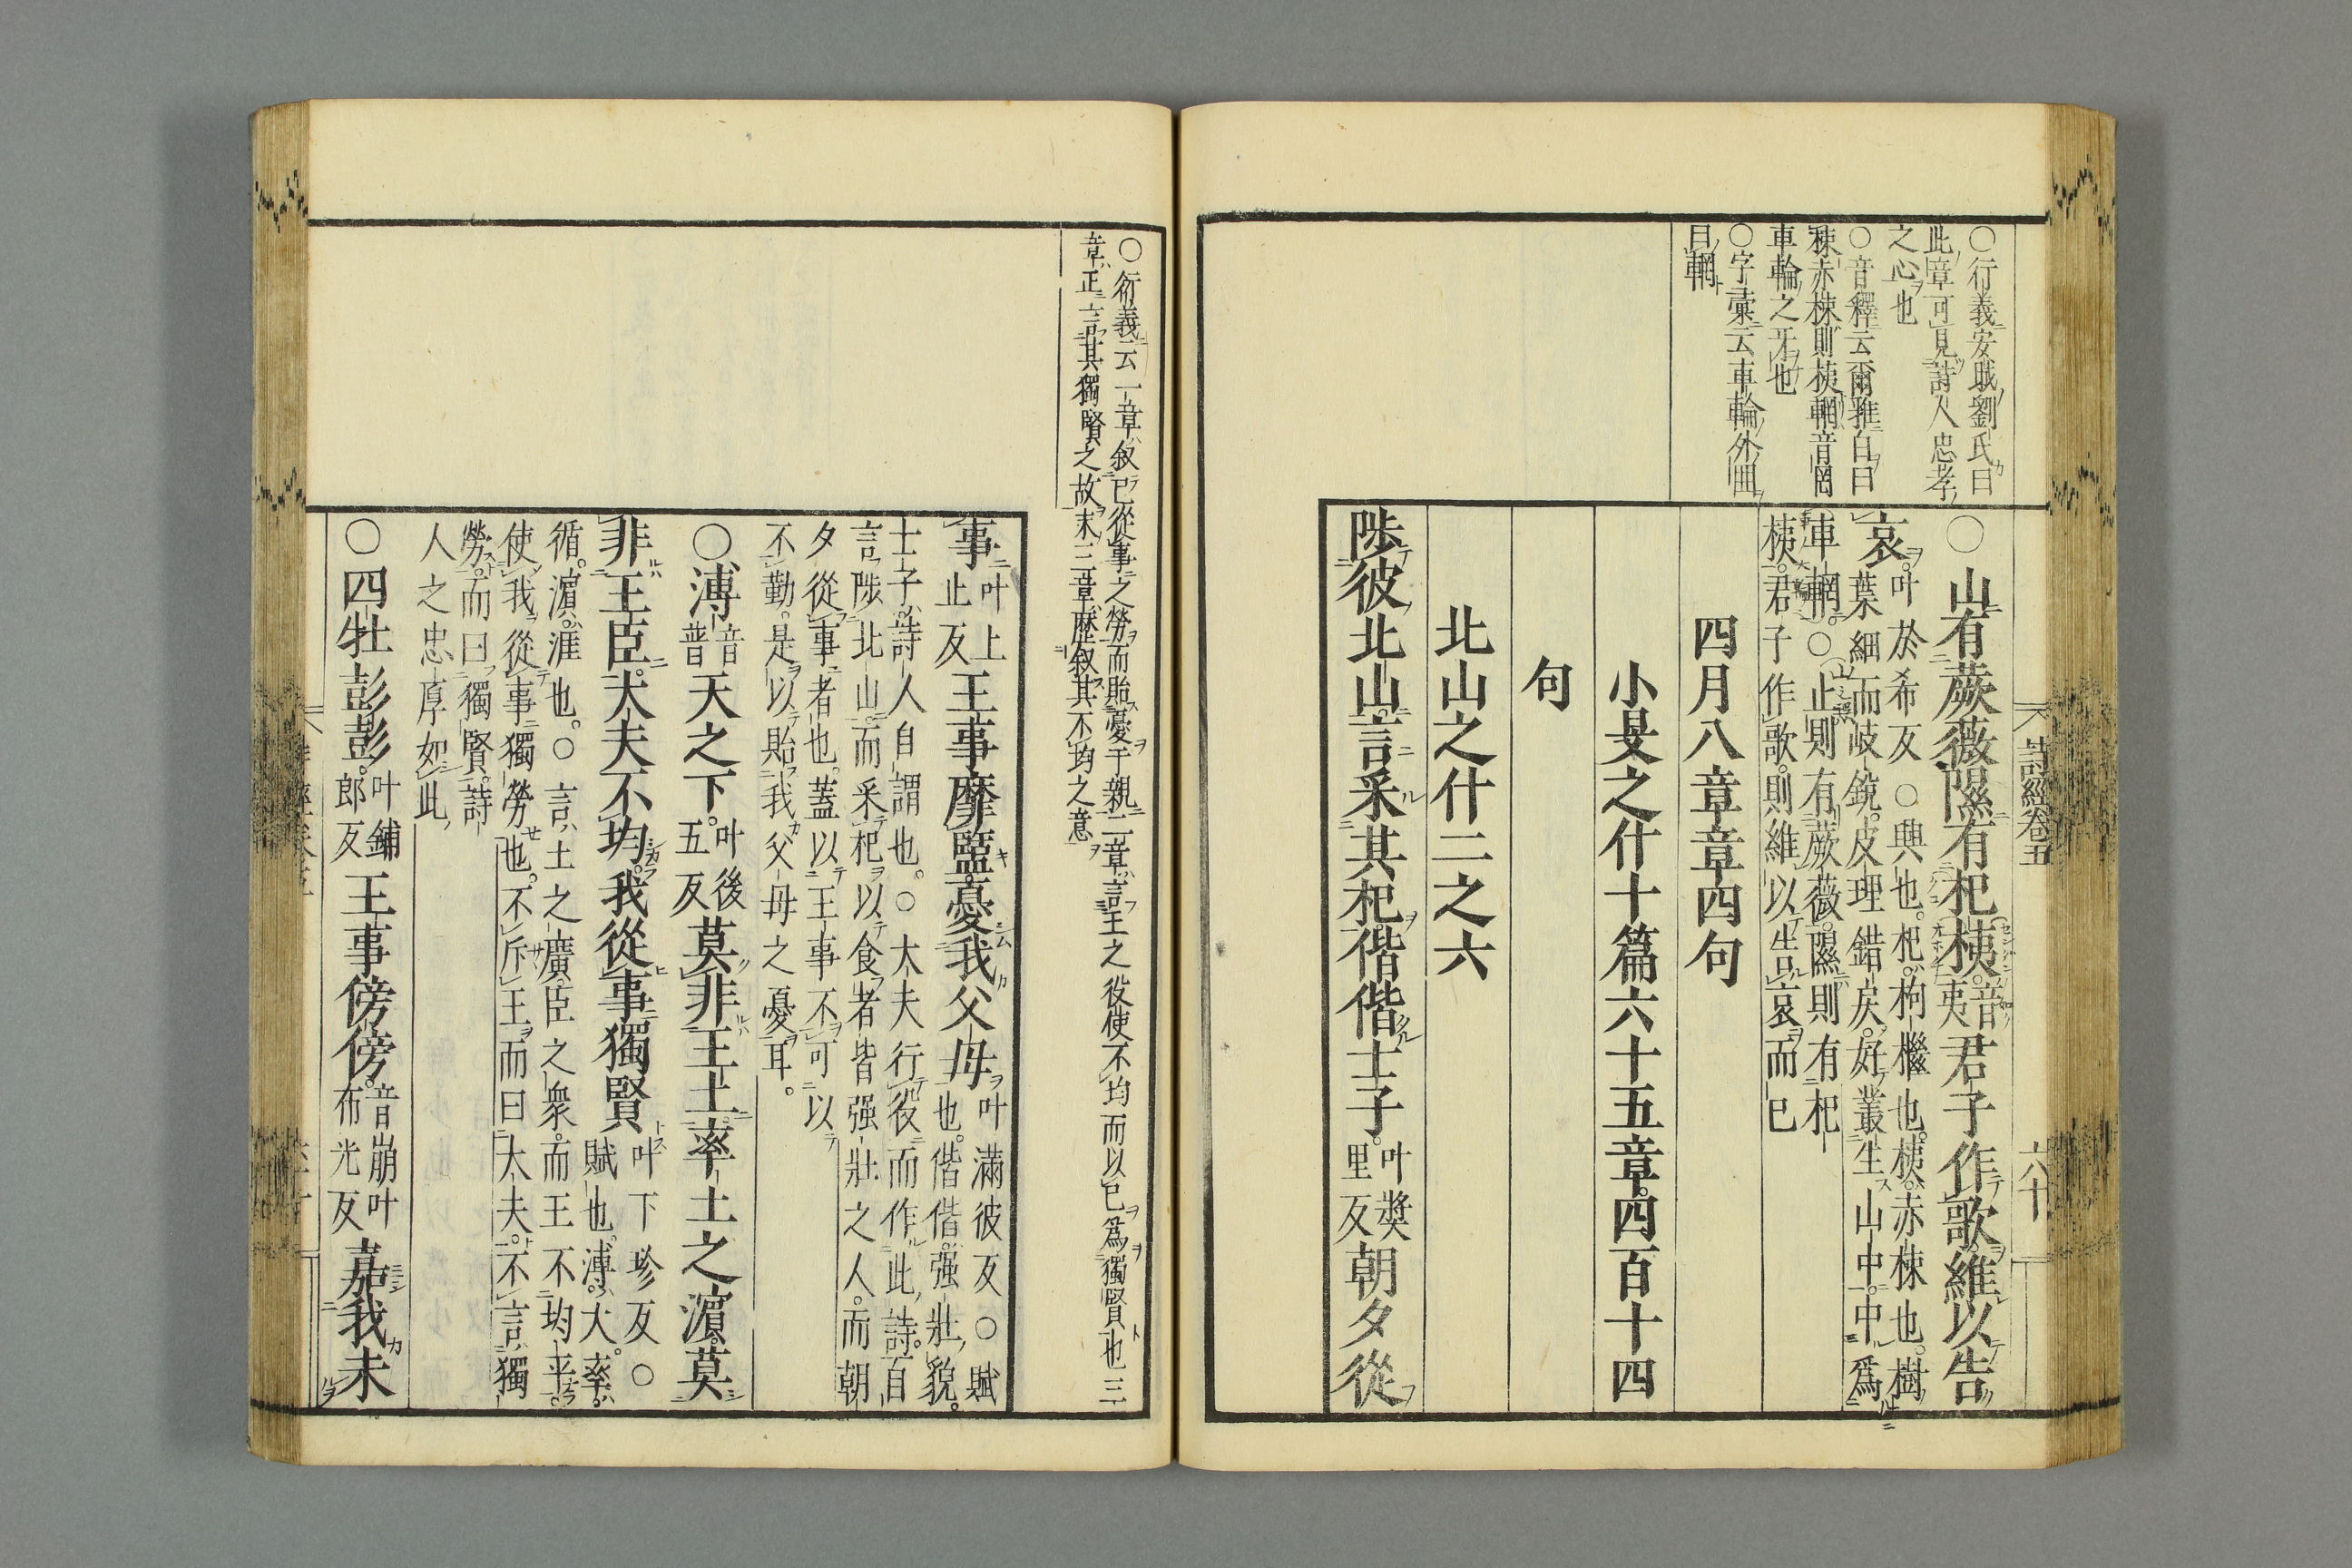 詩經卷五
六十
○行義安戝劉氏曰
此章可見詩人忠孝
之心也
○音釋云爾雅白曰
棟赤棟則桋輞音罔
車輪之牙也
○字彙云車輪外囲
曰輞
○山有蕨薇隰有杞桋音夷君子作歌維以告
哀叶於希反○興也杞枸檵也桋赤棟也樹
葉細而岐銳皮理錯戾好叢生山中中爲
車輞○山則有蕨薇隰則有杞
桋君子作歌則維以告哀而已
四月八章章四句
小旻之什十篇六十五章四百十四
句
北山之什二之六
陟彼北山言采其杞偕偕士子叶獎里反朝夕從
○衍義云一章叙已從事之勞而貽憂于親二章言王之役使不均而以已爲獨賢也三
章正言其獨賢之故末三章歷叙其不均之意
事叶上止反王事靡盬憂我父母叶滿彼反○賦
也偕偕强壯貌
士子詩人自謂也○大夫行役而作此詩百
言陟北山而采杞以食者皆强壯之人而朝
夕從事者也蓋以王事不可以
不勤是以貽我父母之憂耳
○溥音普天之下叶後五反莫非王土率土之濱莫
非王臣大夫不均我從事獨賢叶下珍反○
賦也溥大率
循濱涯也○言土之廣臣之衆而王不均平
使我從事獨勞也不斥王而曰大夫不言獨
勞而曰獨賢詩
人之忠厚如此
○四牡彭彭叶鋪郎反王事傍傍音崩叶布光反嘉我未